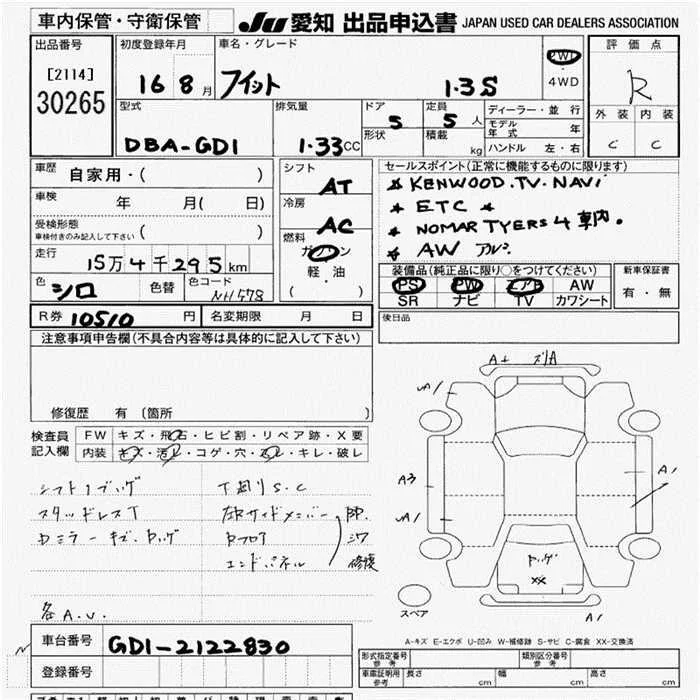 車内保管・守衛保管
JU 愛知 出品申込書 JAPAN USED CAR DEALERS ASSOCIATION
出品番号
[2114]
30265
初度登録年月
16 8月
車名・グレード
フィット 1.3S
2WD
・
4WD
評価点
R
外装 内装
C C
型式
DBA-GD1
排気量
1.33CC
ドア
5
形状
定員
5人
積載
kg
ディーラー・並行
モデル年式 年
ハンドル 左・右
車歴 自家用・( )
車検 年 月( 日)
受検形態
車検付きのみ記入して下さい ( )
走行
15万4千295km
色 シロ 色替 色コード NH578
シフト
AT
冷房
AC
燃料
ガソリン
軽・油
( )
セールスポイント(正常に機能するものに限ります)
★ KENWOOD.TV.NAVI
★ ETC ★
★ NOMAR TYERS 4 車内.
★ AW アルミ.
装備品(純正品に限り○をつけてください)
PS PW エアB AW
SR ナビ TV カワシート
新車保証書
有・無
R券 10510 円 名変期限 月 日
後日品
注意事項申告欄(不具合内容等は具体的に記入して下さい)
修復歴 有 〔箇所 〕
検査員記入欄
FW キズ・飛石・ヒビ割・リペア跡・X要
内装 キズ・汚レ・コゲ・穴・スレ・キレ・破レ
シフトノブハゲ
スタッドレスT
Dミラーキズ.
T廻りS.C
左Rサイドメンバー
Bフロア
エンドパネル
修復
各A.U.
A+ ズリA
A1
A3
A1
A1
XX
A1
スペア
A-キズ E-エクボ U-凹み W-補修跡 S-サビ C-腐食 XX-交換済
車台番号 GD1-2122830
登録番号
形式指定番号
参考
類別区分番号
参考
車庫証明用
参考
長さ cm 幅 cm 高さ cm